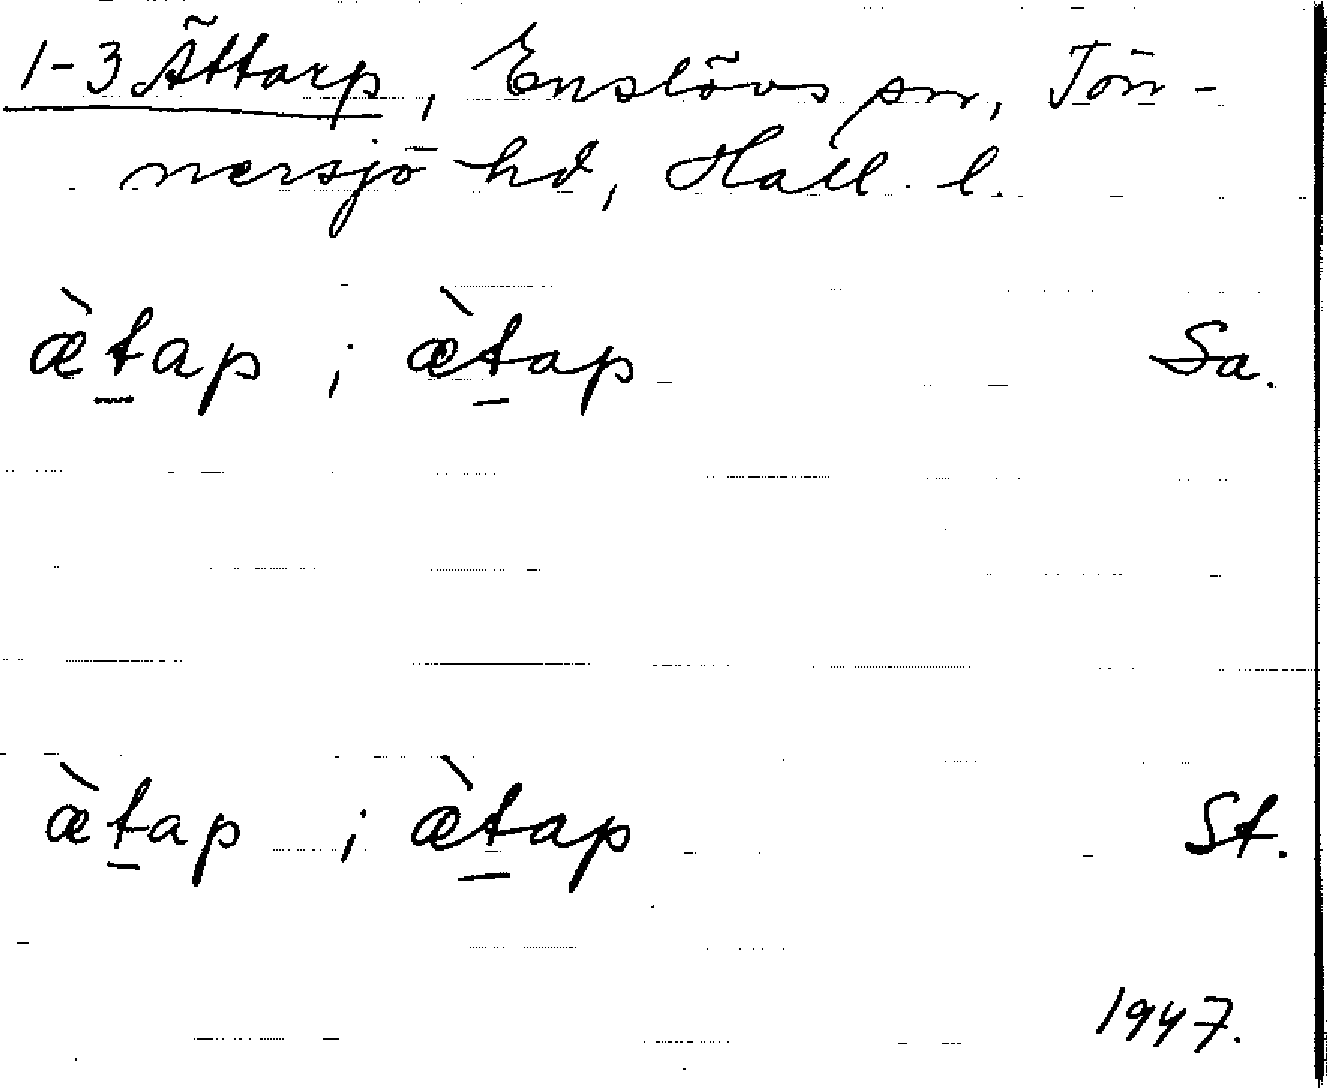 1-3 Ättarp, Enslövs sn, Tön-
nersjö hd, Hall. l.
æ̀t̲ap ; æ̀t̲ap Sa.
æ̀t̲ap ; æ̀t̲ap St.
1947.